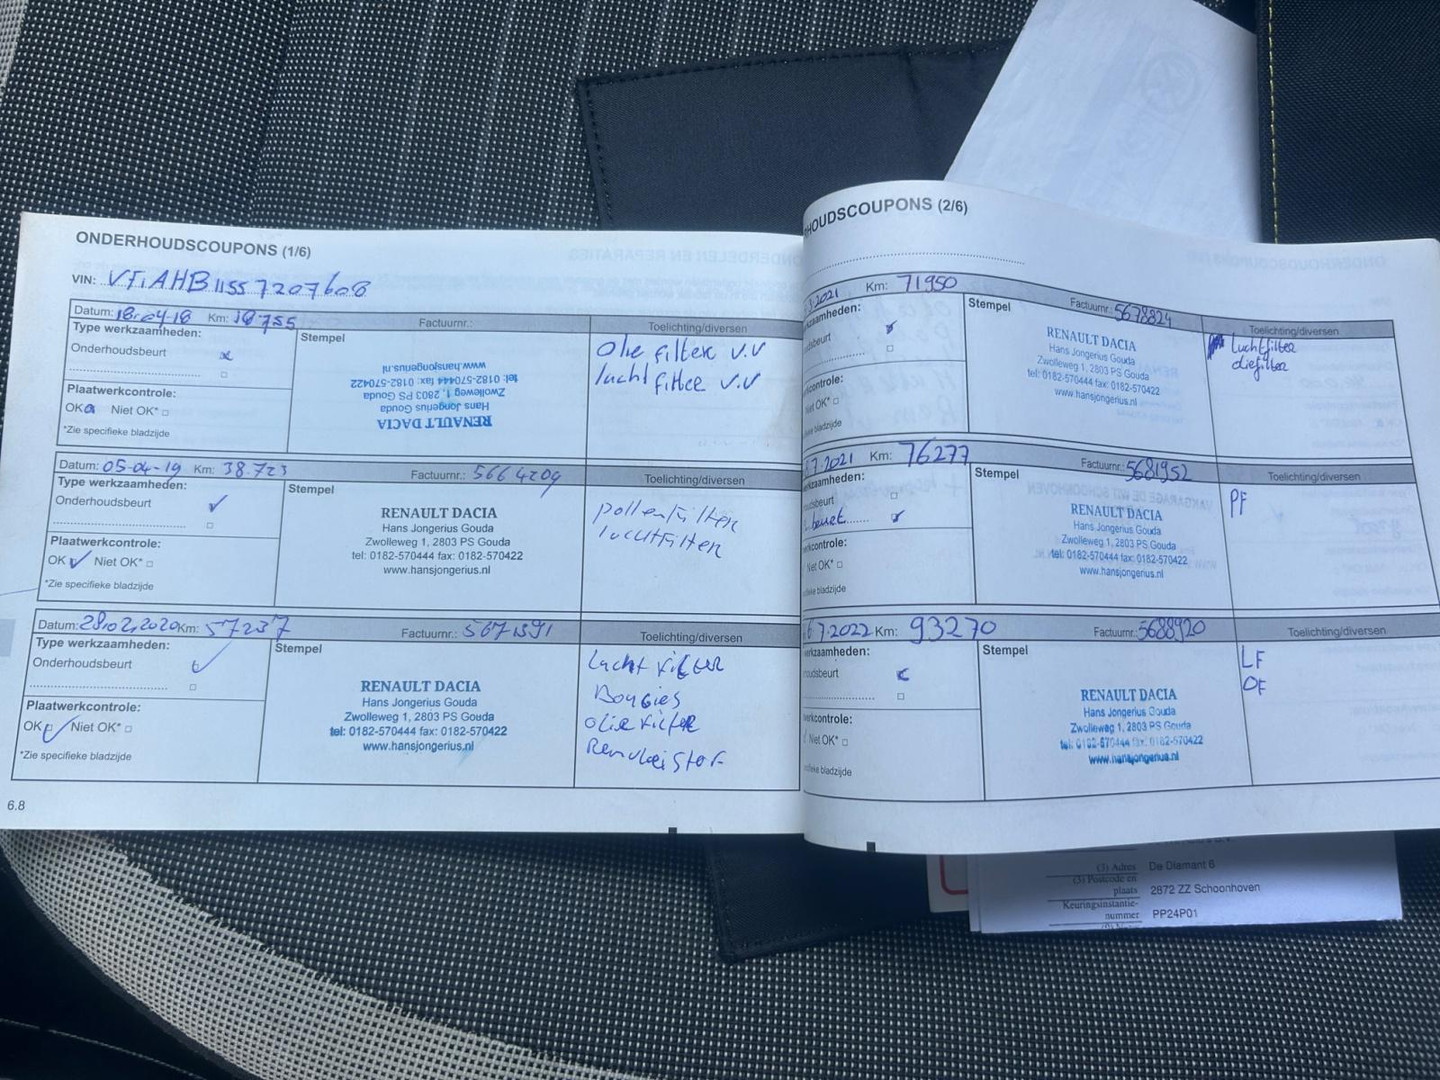 ONDERHOUDSCOUPONS (1/6)
VIN:
Datum: 18-04-18 Km: 18755 Factuurnr.: Toelichting/diversen
Type werkzaamheden:
Stempel
Onderhoudsbeurt
Plaatwerkcontrole:
OK Niet OK*
*Zie specifieke bladzijde
RENAULT DACIA
Hans Jongerius Gouda
Zwolleweg 1, 2803 PS Gouda
tel: 0182-570444 fax: 0182-570422
www.hansjongerius.nl
Olie filter V.V
lucht filter V.V
Datum: 05-04-19 Km: 38.723 Factuurnr.: 5664209 Toelichting/diversen
Type werkzaamheden:
Stempel
Onderhoudsbeurt
Plaatwerkcontrole:
OK Niet OK*
*Zie specifieke bladzijde
RENAULT DACIA
Hans Jongerius Gouda
Zwolleweg 1, 2803 PS Gouda
tel: 0182-570444 fax: 0182-570422
www.hansjongerius.nl
pollenfilter
luchtfilter
Datum: 28.02.2020 Km: 57237 Factuurnr.: 5671391 Toelichting/diversen
Type werkzaamheden:
Stempel
Onderhoudsbeurt
Plaatwerkcontrole:
OK Niet OK*
*Zie specifieke bladzijde
RENAULT DACIA
Hans Jongerius Gouda
Zwolleweg 1, 2803 PS Gouda
tel: 0182-570444 fax: 0182-570422
www.hansjongerius.nl
Lucht filter
Bougies
olie filter
Remvloeistof
6.8
HOUDSCOUPONS (2/6)
2021 Km: 71950 Factuurnr: 5678824 Toelichting/diversen
kzaamheden:
Stempel
beurt
controle:
Niet OK*
bladzijde
RENAULT DACIA
Hans Jongerius Gouda
Zwolleweg 1, 2803 PS Gouda
tel: 0182-570444 fax: 0182-570422
www.hansjongerius.nl
luchtfilter
oliefilter
7.2021 Km: 76277 Factuurnr.: 5681952 Toelichting/diversen
rkzaamheden:
Stempel
dsbeurt
beurt
rkcontrole:
Niet OK*
fieke bladzijde
RENAULT DACIA
Hans Jongerius Gouda
Zwolleweg 1, 2803 PS Gouda
tel: 0182-570444 fax: 0182-570422
www.hansjongerius.nl
PF
7.2022 Km: 93270 Factuurnr.: 5688920 Toelichting/diversen
erkzaamheden:
Stempel
oudsbeurt
werkcontrole:
Niet OK*
cifieke bladzijde
RENAULT DACIA
Hans Jongerius Gouda
Zwolleweg 1, 2803 PS Gouda
tel: 0182-570444 fax: 0182-570422
www.hansjongerius.nl
LF
OF
(3) Adres De Diamant 6
(3) Postcode en
plaats 2872 ZZ Schoonhoven
Keuringsinstantie-
nummer PP24P01